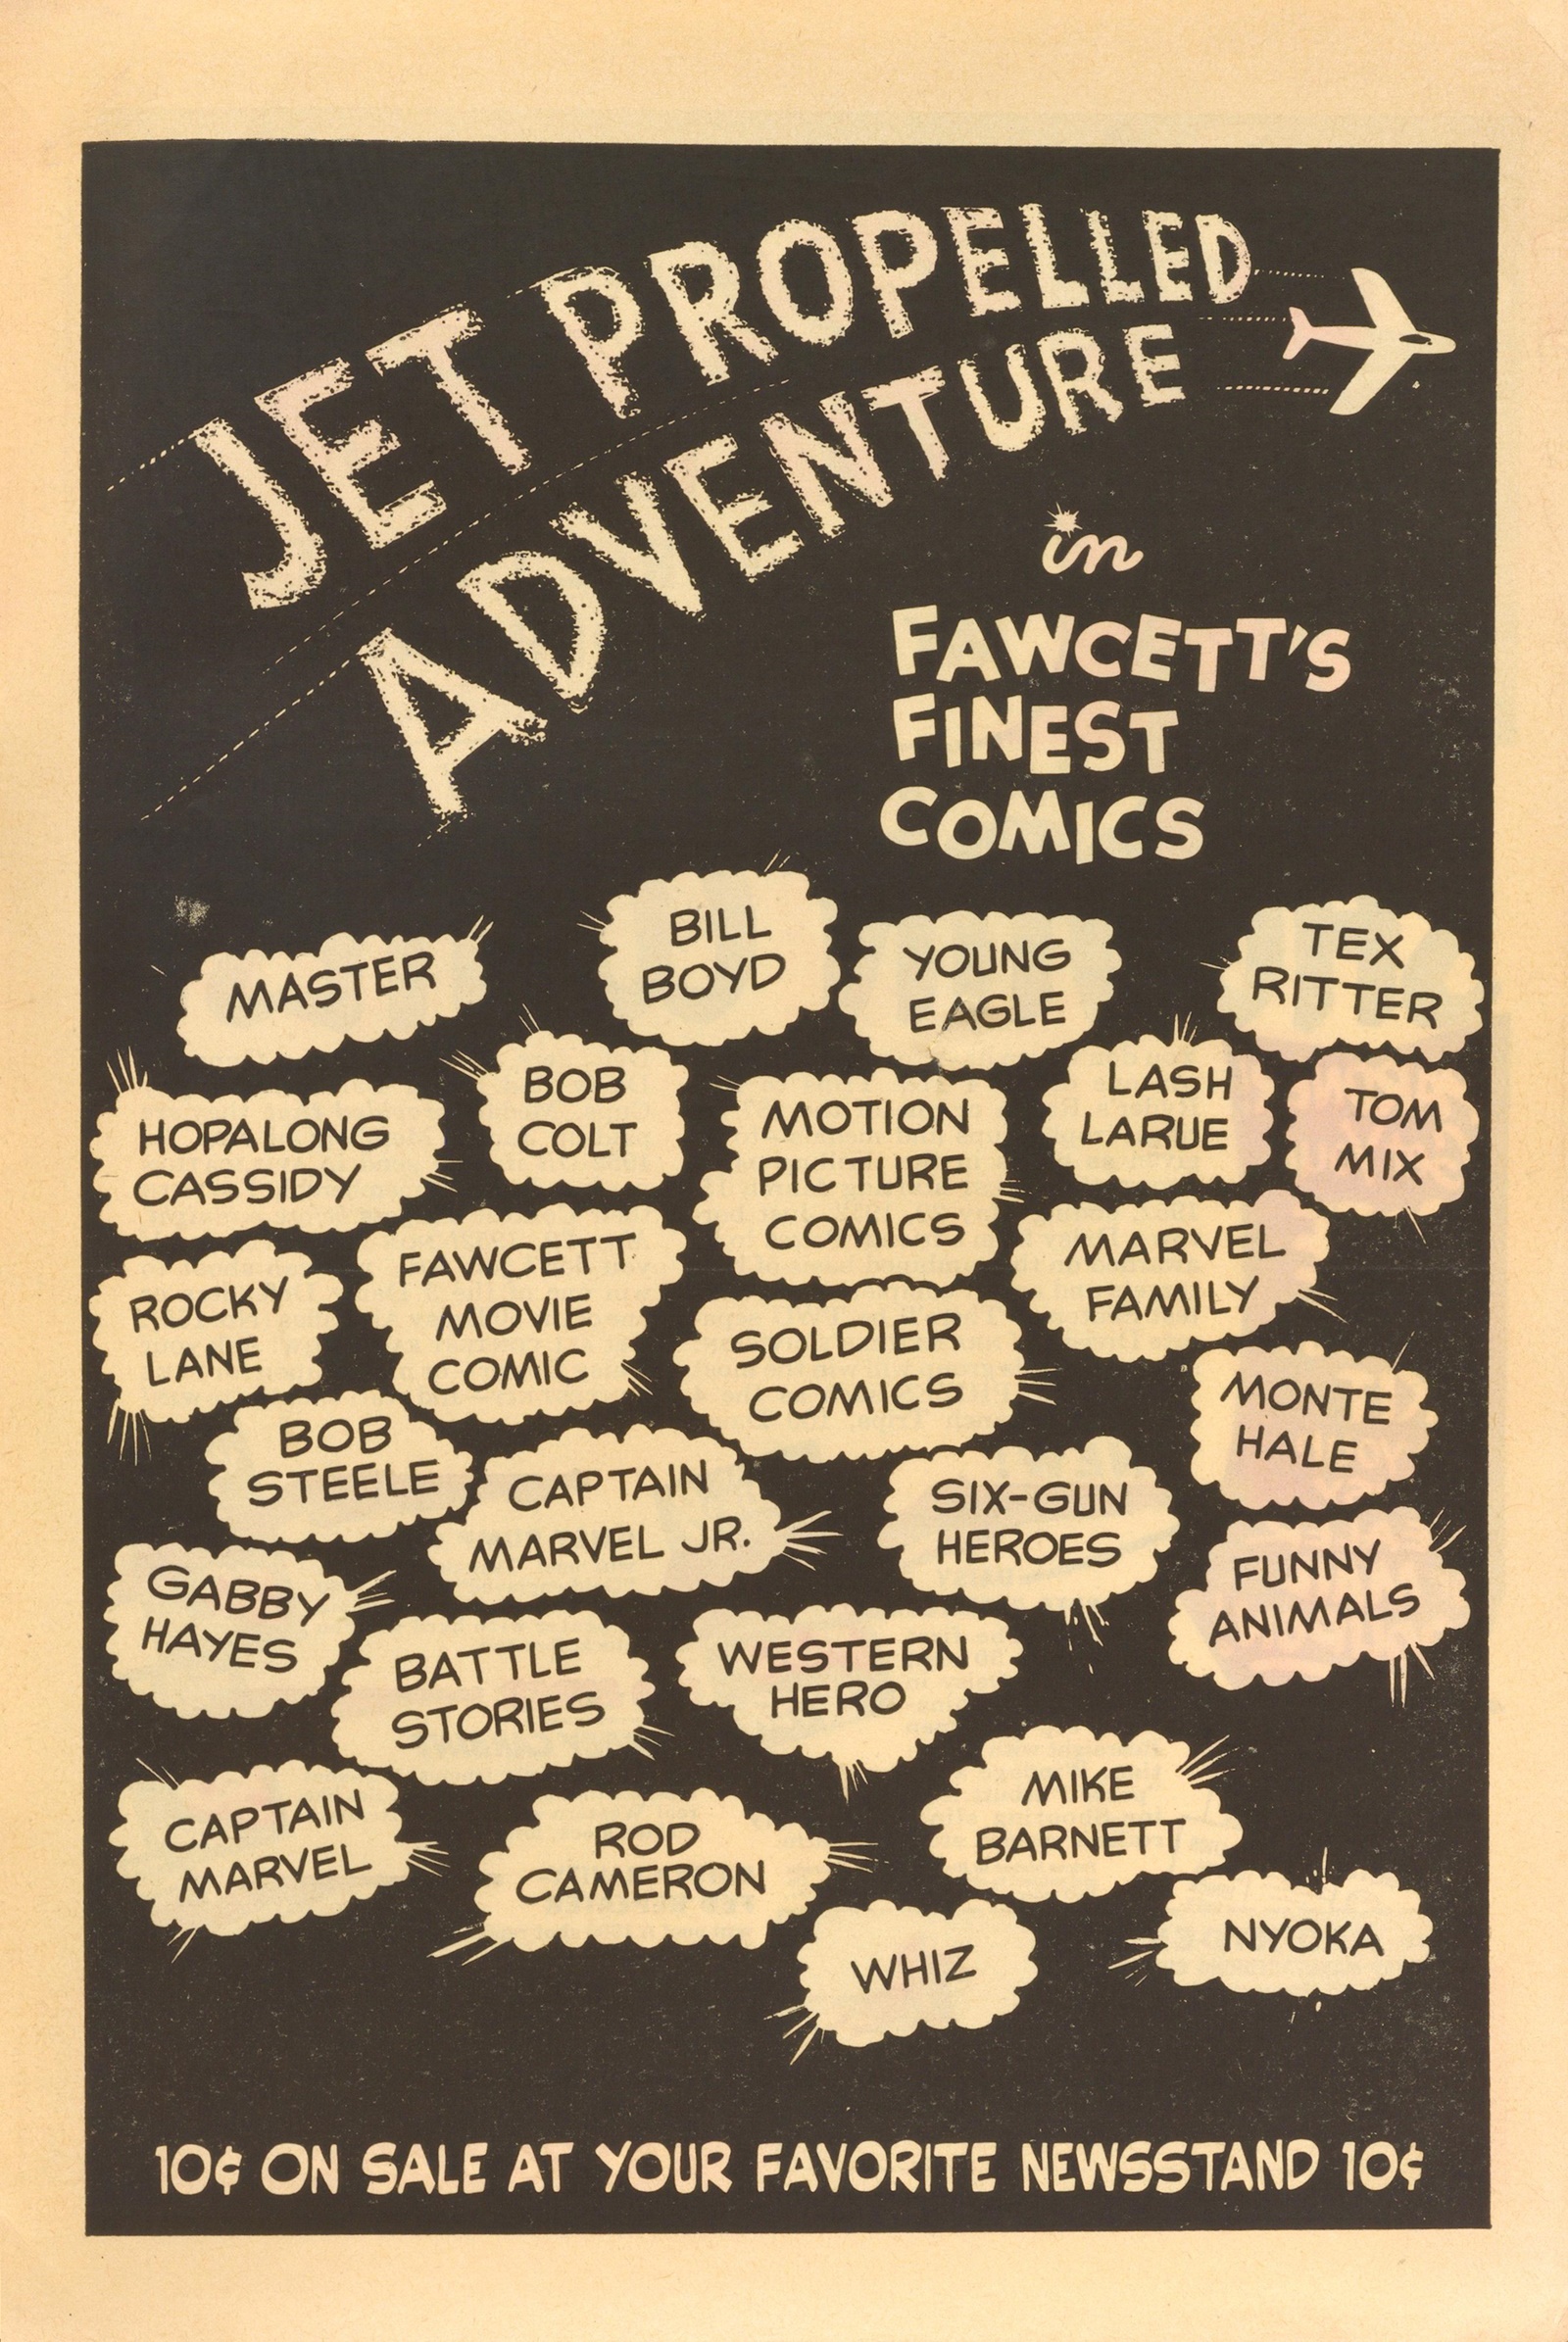 JET PROPELLED
ADVENTURE
in
FAWCETT'S
FINEST
COMICS
MASTER
BILL
BOYD
YOUNG
EAGLE
TEX
RITTER
HOPALONG
CASSIDY
BOB
COLT
MOTION
PICTURE
COMICS
LASH
LARUE
TOM
MIX
ROCKY
LANE
FAWCETT
MOVIE
COMIC
SOLDIER
COMICS
MARVEL
FAMILY
MONTE
HALE
BOB
STEELE
CAPTAIN
MARVEL JR.
SIX-GUN
HEROES
FUNNY
ANIMALS
GABBY
HAYES
BATTLE
STORIES
WESTERN
HERO
MIKE
BARNETT
CAPTAIN
MARVEL
ROD
CAMERON
WHIZ
NYOKA
10¢ ON SALE AT YOUR FAVORITE NEWSSTAND 10¢